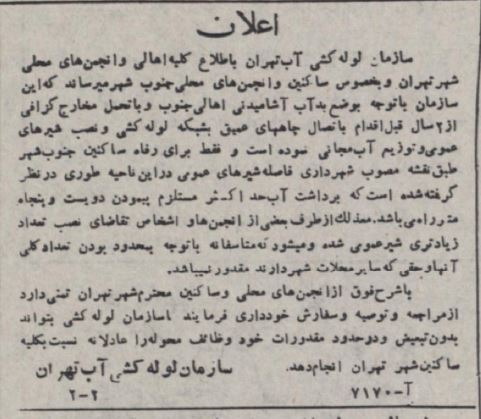 اعلان
سازمان لوله کشی آب تهران باطلاع کلیه اهالی و انجمن های محلی
شهر تهران و بخصوص ساکنین و انجمن های محلی جنوب شهر میرساند که این
سازمان باتوجه بوضع بد آب آشامیدنی اهالی جنوب و باتحمل مخارج گزافی
از ۲ سال قبل اقدام باتصال چاههای عمیق بشبکه لوله کشی و نصب شیرهای
عمومی و توزیع آب مجانی نموده است و فقط برای رفاه ساکنین جنوب شهر
طبق نقشه مصوب شهرداری فاصله شیرهای عمومی در این ناحیه طوری در نظر
گرفته شده است که برداشت آب حداکثر مستلزم پیمودن دویست و پنجاه
متر راه می باشد. معذلک از طرف بعضی از انجمن ها و اشخاص تقاضای نصب تعداد
زیادتری شیر عمومی شده و میشود که متاسفانه باتوجه بمحدود بودن تعداد کلی
آنها و حقی که سایر محلات شهر دارند مقدور نمیباشد.
باشرح فوق از انجمن های محلی و ساکنین محترم شهر تهران تمنی دارد
از مراجعه و توصیه و سفارش خودداری فرمایند تا سازمان لوله کشی بتواند
بدون تبعیض و در حدود مقدورات خود وظائف محوله را عادلانه نسبت بکلیه
ساکنین شهر تهران انجام دهد. سازمان لوله کشی آب تهران
آ-۷۱۷۰ ۲-۲